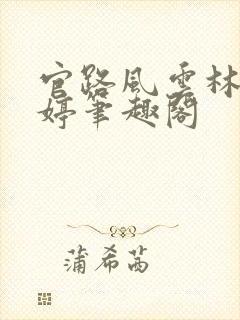 官路風雲林
婷筆趣閣
蒲希茜